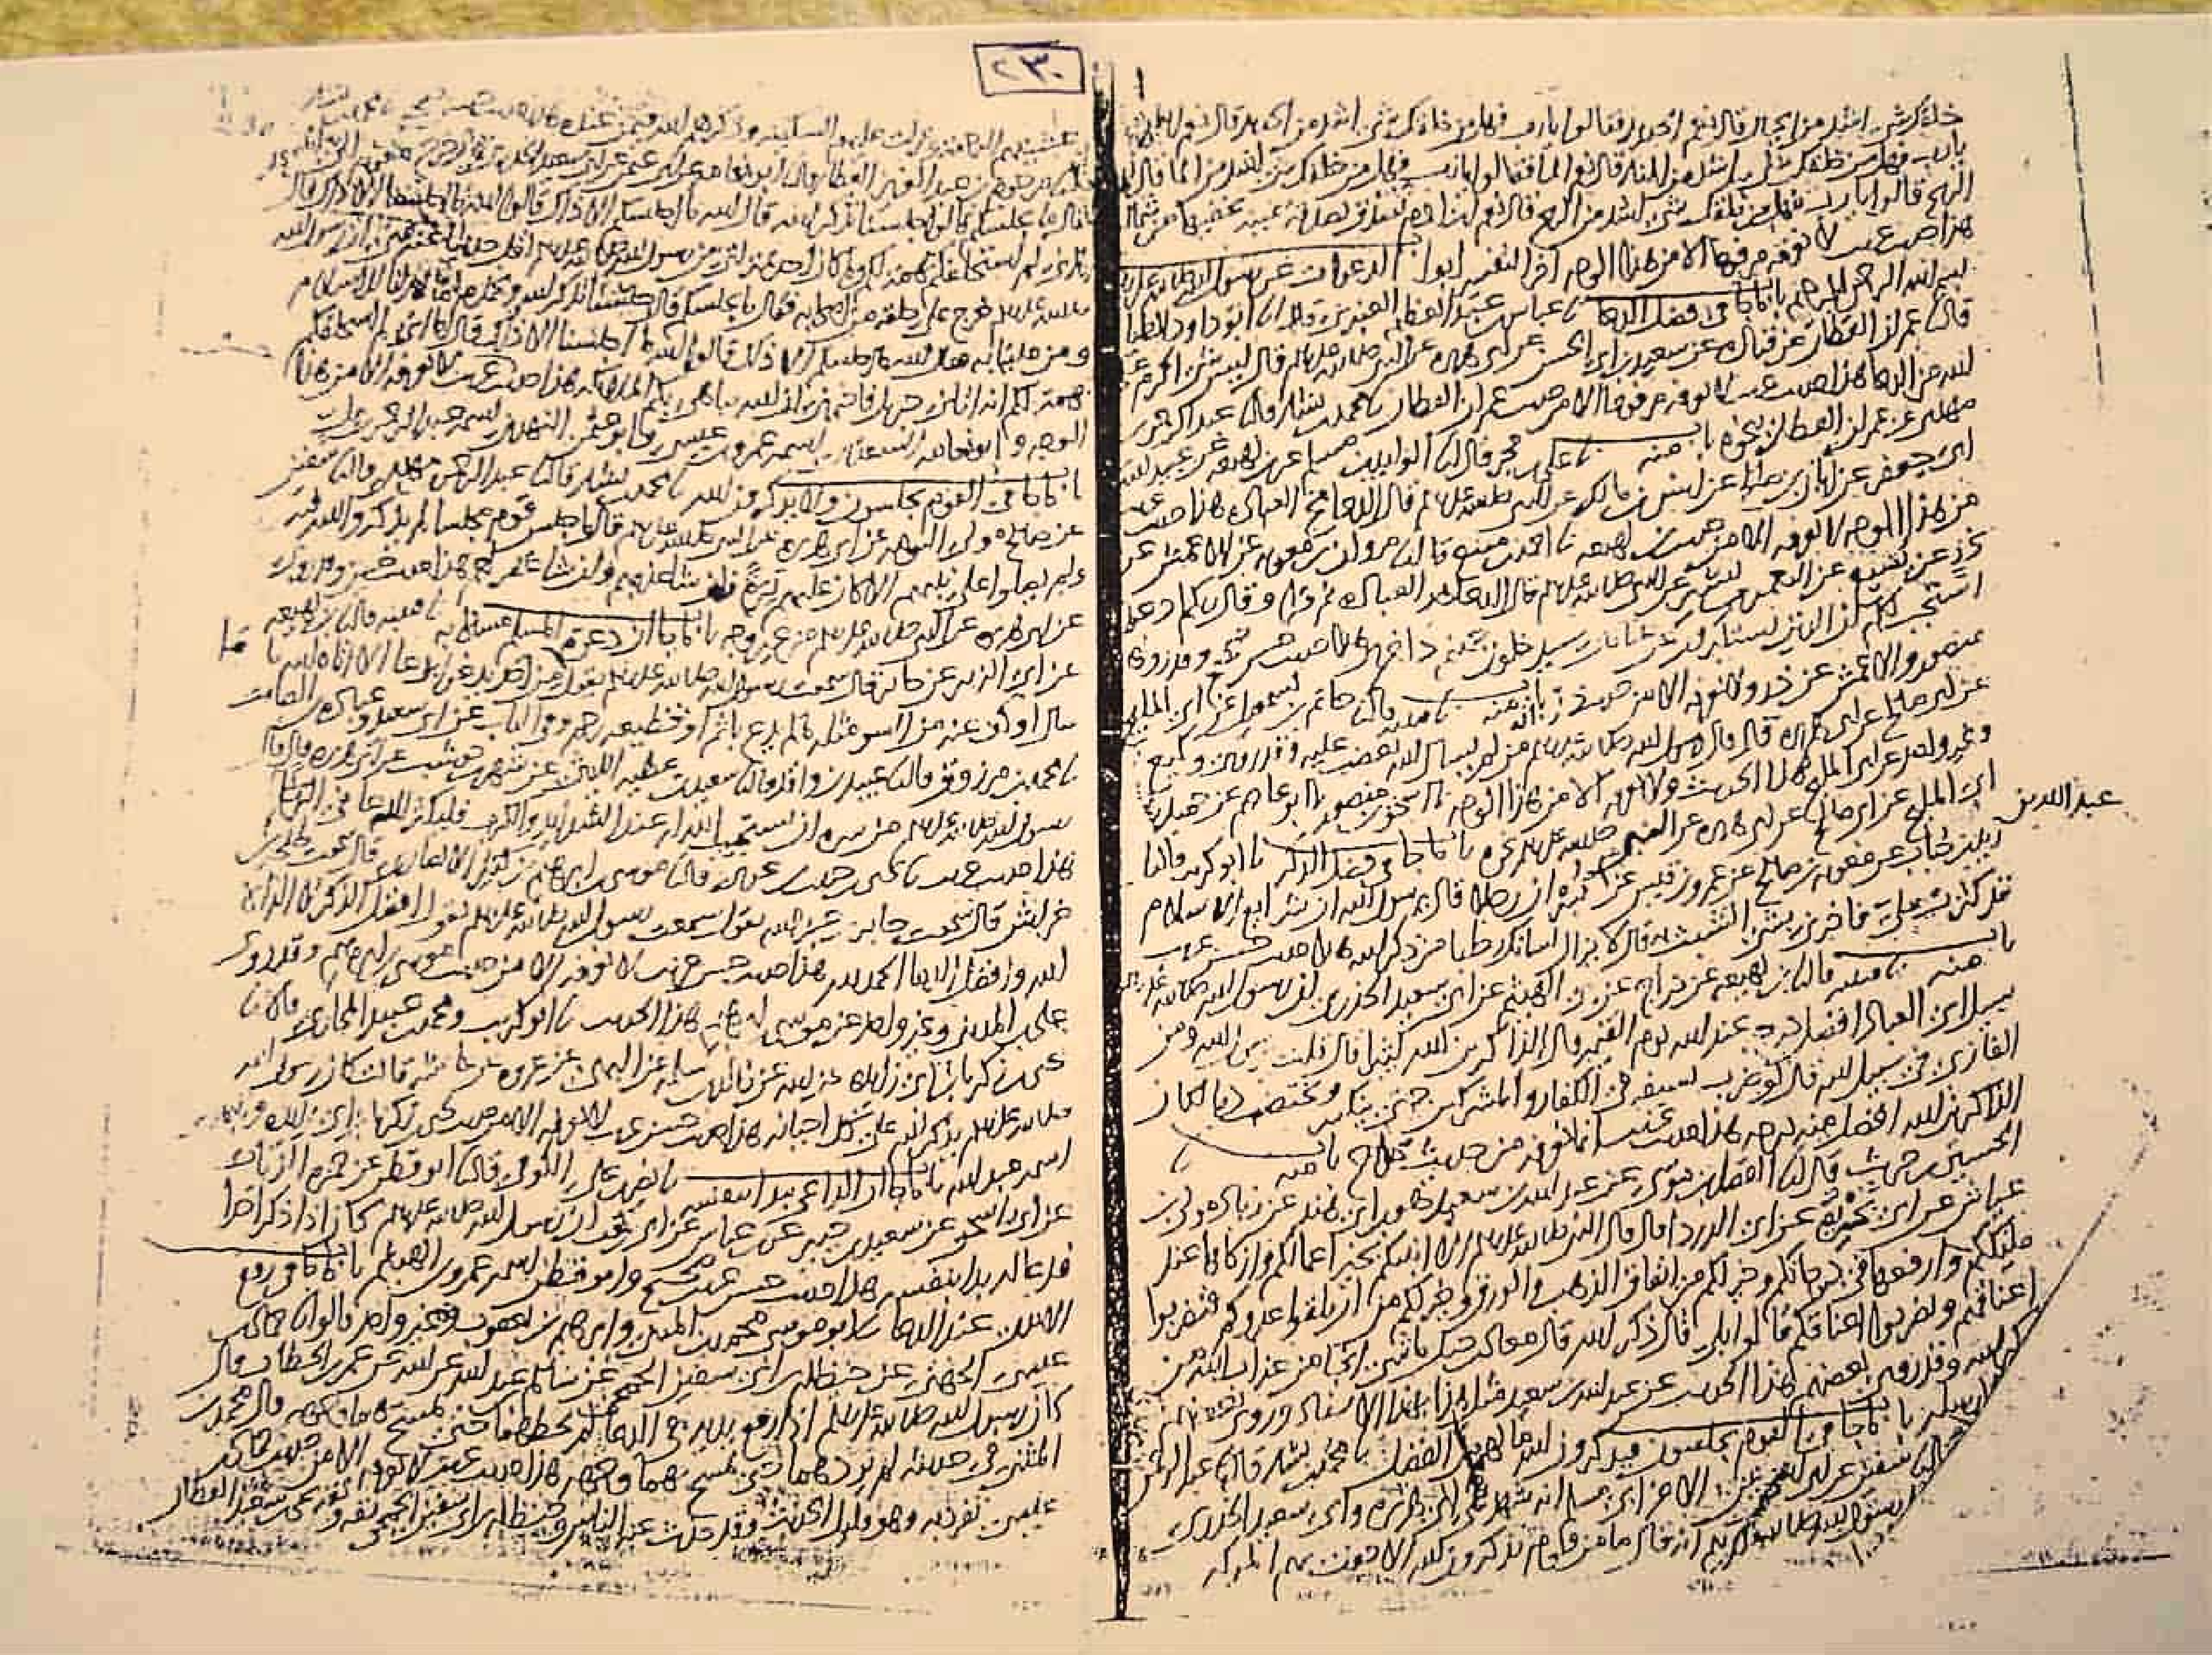 ٢٣٠
خلقك شي اشد من الجبال قال نعم الحديد فقالوا يا رب فهل من خلقك شي اشد من الحديد قال نعم النار
يا رب فهل من خلقك شي اشد من النار قال نعم الما فقالوا يا رب فهل من خلقك شي اشد من الما قال نعم
الريح قالوا يا رب فهل من خلقك شي اشد من الريح قال نعم ابن ادم تصدق بصدقة بيمينه يخفيها من شماله
هذا حديث غريب لا نعرفه مرفوعا الا من هذا الوجه اخر التفسير ابواب الدعوات عن رسول الله صلى الله عليه
بسم الله الرحمن الرحيم باب ما جا في فضل الدعا نا عباس بن عبد العظيم العنبري قال نا ابو داود الطيالسي
قال نا عمران القطان عن قتادة عن سعيد بن ابي الحسن عن ابي هريرة عن النبي صلى الله عليه وسلم قال ليس شي اكرم على
الله من الدعا هذا حديث غريب لا نعرفه مرفوعا الا من حديث عمران القطان نا محمد بن بشار قال نا عبد الرحمن بن
مهدي عن عمران القطان نحوه باب منه نا علي بن حجر قال نا الوليد بن مسلم عن ابن لهيعة عن عبيد الله بن
ابي جعفر عن ابان بن صالح عن انس بن مالك عن النبي صلى الله عليه وسلم قال الدعا مخ العبادة هذا حديث غريب
من هذا الوجه لا نعرفه الا من حديث ابن لهيعة نا احمد بن منيع قال نا مروان بن معوية عن الاعمش عن
ذر عن يسيع عن النعمن بن بشير عن النبي صلى الله عليه وسلم قال الدعا هو العبادة ثم قرا وقال ربكم ادعوني
استجب لكم ان الذين يستكبرون عن عبادتي سيدخلون جهنم داخرين هذا حديث حسن صحيح وقد رواه
منصور والاعمش عن ذر ولا نعرفه الا من حديث ذر باب منه نا قتيبة قال نا حاتم بن اسمعيل عن ابي المليح
عن ابي صالح عن ابي هريرة قال قال رسول الله صلى الله عليه وسلم من لم يسال الله يغضب عليه وقد روى وكيع
وغير واحد عن ابي المليح هذا الحديث ولا نعرفه الا من هذا الوجه نا اسحق بن منصور نا ابو عاصم عن حميد
ابي المليح عن ابي صالح عن ابي هريرة عن النبي صلى الله عليه وسلم نحوه باب ما جا في فضل الذكر نا ابو كريب قال نا
زيد بن حباب عن معوية بن صالح عن عمرو بن قيس عن عبد الله بن بسر ان رجلا قال يا رسول الله ان شرايع الاسلام
عبد الله بن
قد كثرت علي فاخبرني بشي اتشبث به قال لا يزال لسانك رطبا من ذكر الله هذا حديث حسن غريب
باب منه نا قتيبة قال نا ابن لهيعة عن دراج عن ابي الهيثم عن ابي سعيد الخدري ان رسول الله صلى الله عليه وسلم
سيل اي العباد افضل درجة عند الله يوم القيمة قال الذاكرين الله كثيرا قال قلت يا رسول الله ومن
الغازي في سبيل الله قال لو ضرب بسيفه في الكفار والمشركين حتى ينكسر ويختضب دما لكان
الذاكرين الله افضل منه درجة هذا حديث غريب انما نعرفه من حديث دراج باب منه نا
الحسين بن حريث قال نا الفضل بن موسى عن عبد الله بن سعيد هو ابن ابي هند عن زياد مولى ابن
عياش عن ابي بحرية عن ابي الدردا قال قال النبي صلى الله عليه وسلم الا انبيكم بخير اعمالكم وازكاها عند
مليككم وارفعها في درجاتكم وخير لكم من انفاق الذهب والورق وخير لكم من ان تلقوا عدوكم فتضربوا
اعناقهم ويضربوا اعناقكم قالوا بلى قال ذكر الله قال معاذ بن جبل ما شي انجى من عذاب الله من
ذكر الله وقد روى بعضهم هذا الحديث عن عبد الله بن سعيد مثل هذا بهذا الاسناد وروى بعضهم
فارسله باب ما جا في القوم يجلسون فيذكرون الله ما لهم من الفضل نا محمد بن بشار قال نا عبد الرحمن
قال نا سفين عن ابي اسحق عن الاغر ابي مسلم انه شهد على ابي هريرة وابي سعيد الخدري
رسول الله صلى الله عليه وسلم انه قال ما من قوم يذكرون الله الا حفت بهم الملايكة
وغشيتهم الرحمة ونزلت عليهم السكينة وذكرهم الله فيمن عنده هذا حديث حسن صحيح نا محمد بن بشار
نا مرحوم بن عبد العزيز العطار قال نا ابو نعامة عن ابي عثمن عن ابي سعيد الخدري
ما يجلسكم قالوا جلسنا نذكر الله قال آلله ما اجلسكم الا ذاك قالوا آلله ما اجلسنا الا ذاك قال
اما اني لم استحلفكم تهمة لكم وما كان احد بمنزلتي من رسول الله صلى الله عليه وسلم اقل حديثا عنه مني ان رسول الله
صلى الله عليه وسلم خرج على حلقة من اصحابه فقال ما يجلسكم قالوا جلسنا نذكر الله ونحمده لما هدانا للاسلام
ومن علينا به فقال آلله ما اجلسكم الا ذاك قالوا آلله ما اجلسنا الا ذاك قال اما اني لم استحلفكم
تهمة لكم انه اتاني جبريل فاخبرني ان الله يباهي بكم الملايكة هذا حديث غريب لا نعرفه الا من هذا
الوجه وابو نعامة السعدي اسمه عمرو بن عيسى وابو عثمن النهدي اسمه عبد الرحمن بن مل
باب ما جا في القوم يجلسون ولا يذكرون الله نا محمد بن بشار قال نا عبد الرحمن بن مهدي قال نا سفين
عن صالح مولى التوءمة عن ابي هريرة عن النبي صلى الله عليه وسلم قال ما جلس قوم مجلسا لم يذكروا الله فيه
ولم يصلوا على نبيهم الا كان عليهم ترة فان شا عذبهم وان شا غفر لهم هذا حديث حسن وقد روي
عن ابي هريرة عن النبي صلى الله عليه وسلم من غير وجه باب ما جا ان دعوة المسلم مستجابة نا قتيبة قال نا ابن لهيعة
عن ابي الزبير عن جابر قال سمعت رسول الله صلى الله عليه وسلم يقول ما من احد يدعو بدعا الا اتاه الله ما
ما
سال او كف عنه من السو مثله ما لم يدع باثم او قطيعة رحم وفي الباب عن ابي سعيد وعبادة بن الصامت
نا محمد بن مرزوق قال نا عبيد بن واقد قال نا سعيد بن عطية الليثي عن شهر بن حوشب عن ابي هريرة قال قال
رسول الله صلى الله عليه وسلم من سره ان يستجيب الله له عند الشدايد والكرب فليكثر الدعا في الرخا
هذا حديث غريب نا يحيى بن حبيب بن عربي قال نا موسى بن ابرهيم بن كثير الانصاري قال سمعت طلحة بن
خراش قال سمعت جابر بن عبد الله يقول سمعت رسول الله صلى الله عليه وسلم يقول افضل الذكر لا اله الا
الله وافضل الدعا الحمد لله هذا حديث حسن غريب لا نعرفه الا من حديث موسى بن ابرهيم وقد روى
علي بن المديني وغير واحد عن موسى بن ابرهيم هذا الحديث نا ابو كريب ومحمد بن عبيد المحاربي قالا نا
يحيى بن زكريا بن ابي زايدة عن ابيه عن خالد بن سلمة عن البهي عن عروة عن عايشة قالت كان رسول الله
صلى الله عليه وسلم يذكر الله على كل احيانه هذا حديث حسن غريب لا نعرفه الا من حديث يحيى بن زكريا بن ابي زايدة والبهي
اسمه عبد الله باب ما جا ان الداعي يبدا بنفسه نا نصر بن علي الكوفي قال نا ابو قطن عن حمزة الزيات
عن ابي اسحق عن سعيد بن جبير عن ابن عباس عن ابي بن كعب ان رسول الله صلى الله عليه وسلم كان اذا ذكر احدا
فدعا له بدا بنفسه هذا حديث حسن غريب صحيح وابو قطن اسمه عمرو بن الهيثم باب ما جا في رفع
الايدي عند الدعا نا ابو موسى محمد بن المثنى وابرهيم بن يعقوب وغير واحد قالوا نا حماد بن
عيسى الجهني عن حنظلة بن ابي سفين الجمحي عن سالم بن عبد الله عن ابيه عن عمر بن الخطاب قال
كان رسول الله صلى الله عليه وسلم اذا رفع يديه في الدعا لم يحطهما حتى يمسح بهما وجهه قال محمد بن
المثنى في حديثه لم يردهما حتى يمسح بهما وجهه هذا حديث غريب لا نعرفه الا من حديث حماد بن
عيسى تفرد به وهو قليل الحديث وقد حدث عنه الناس وحنظلة بن ابي سفين الجمحي ثقة وثقه يحيى بن سعيد القطان